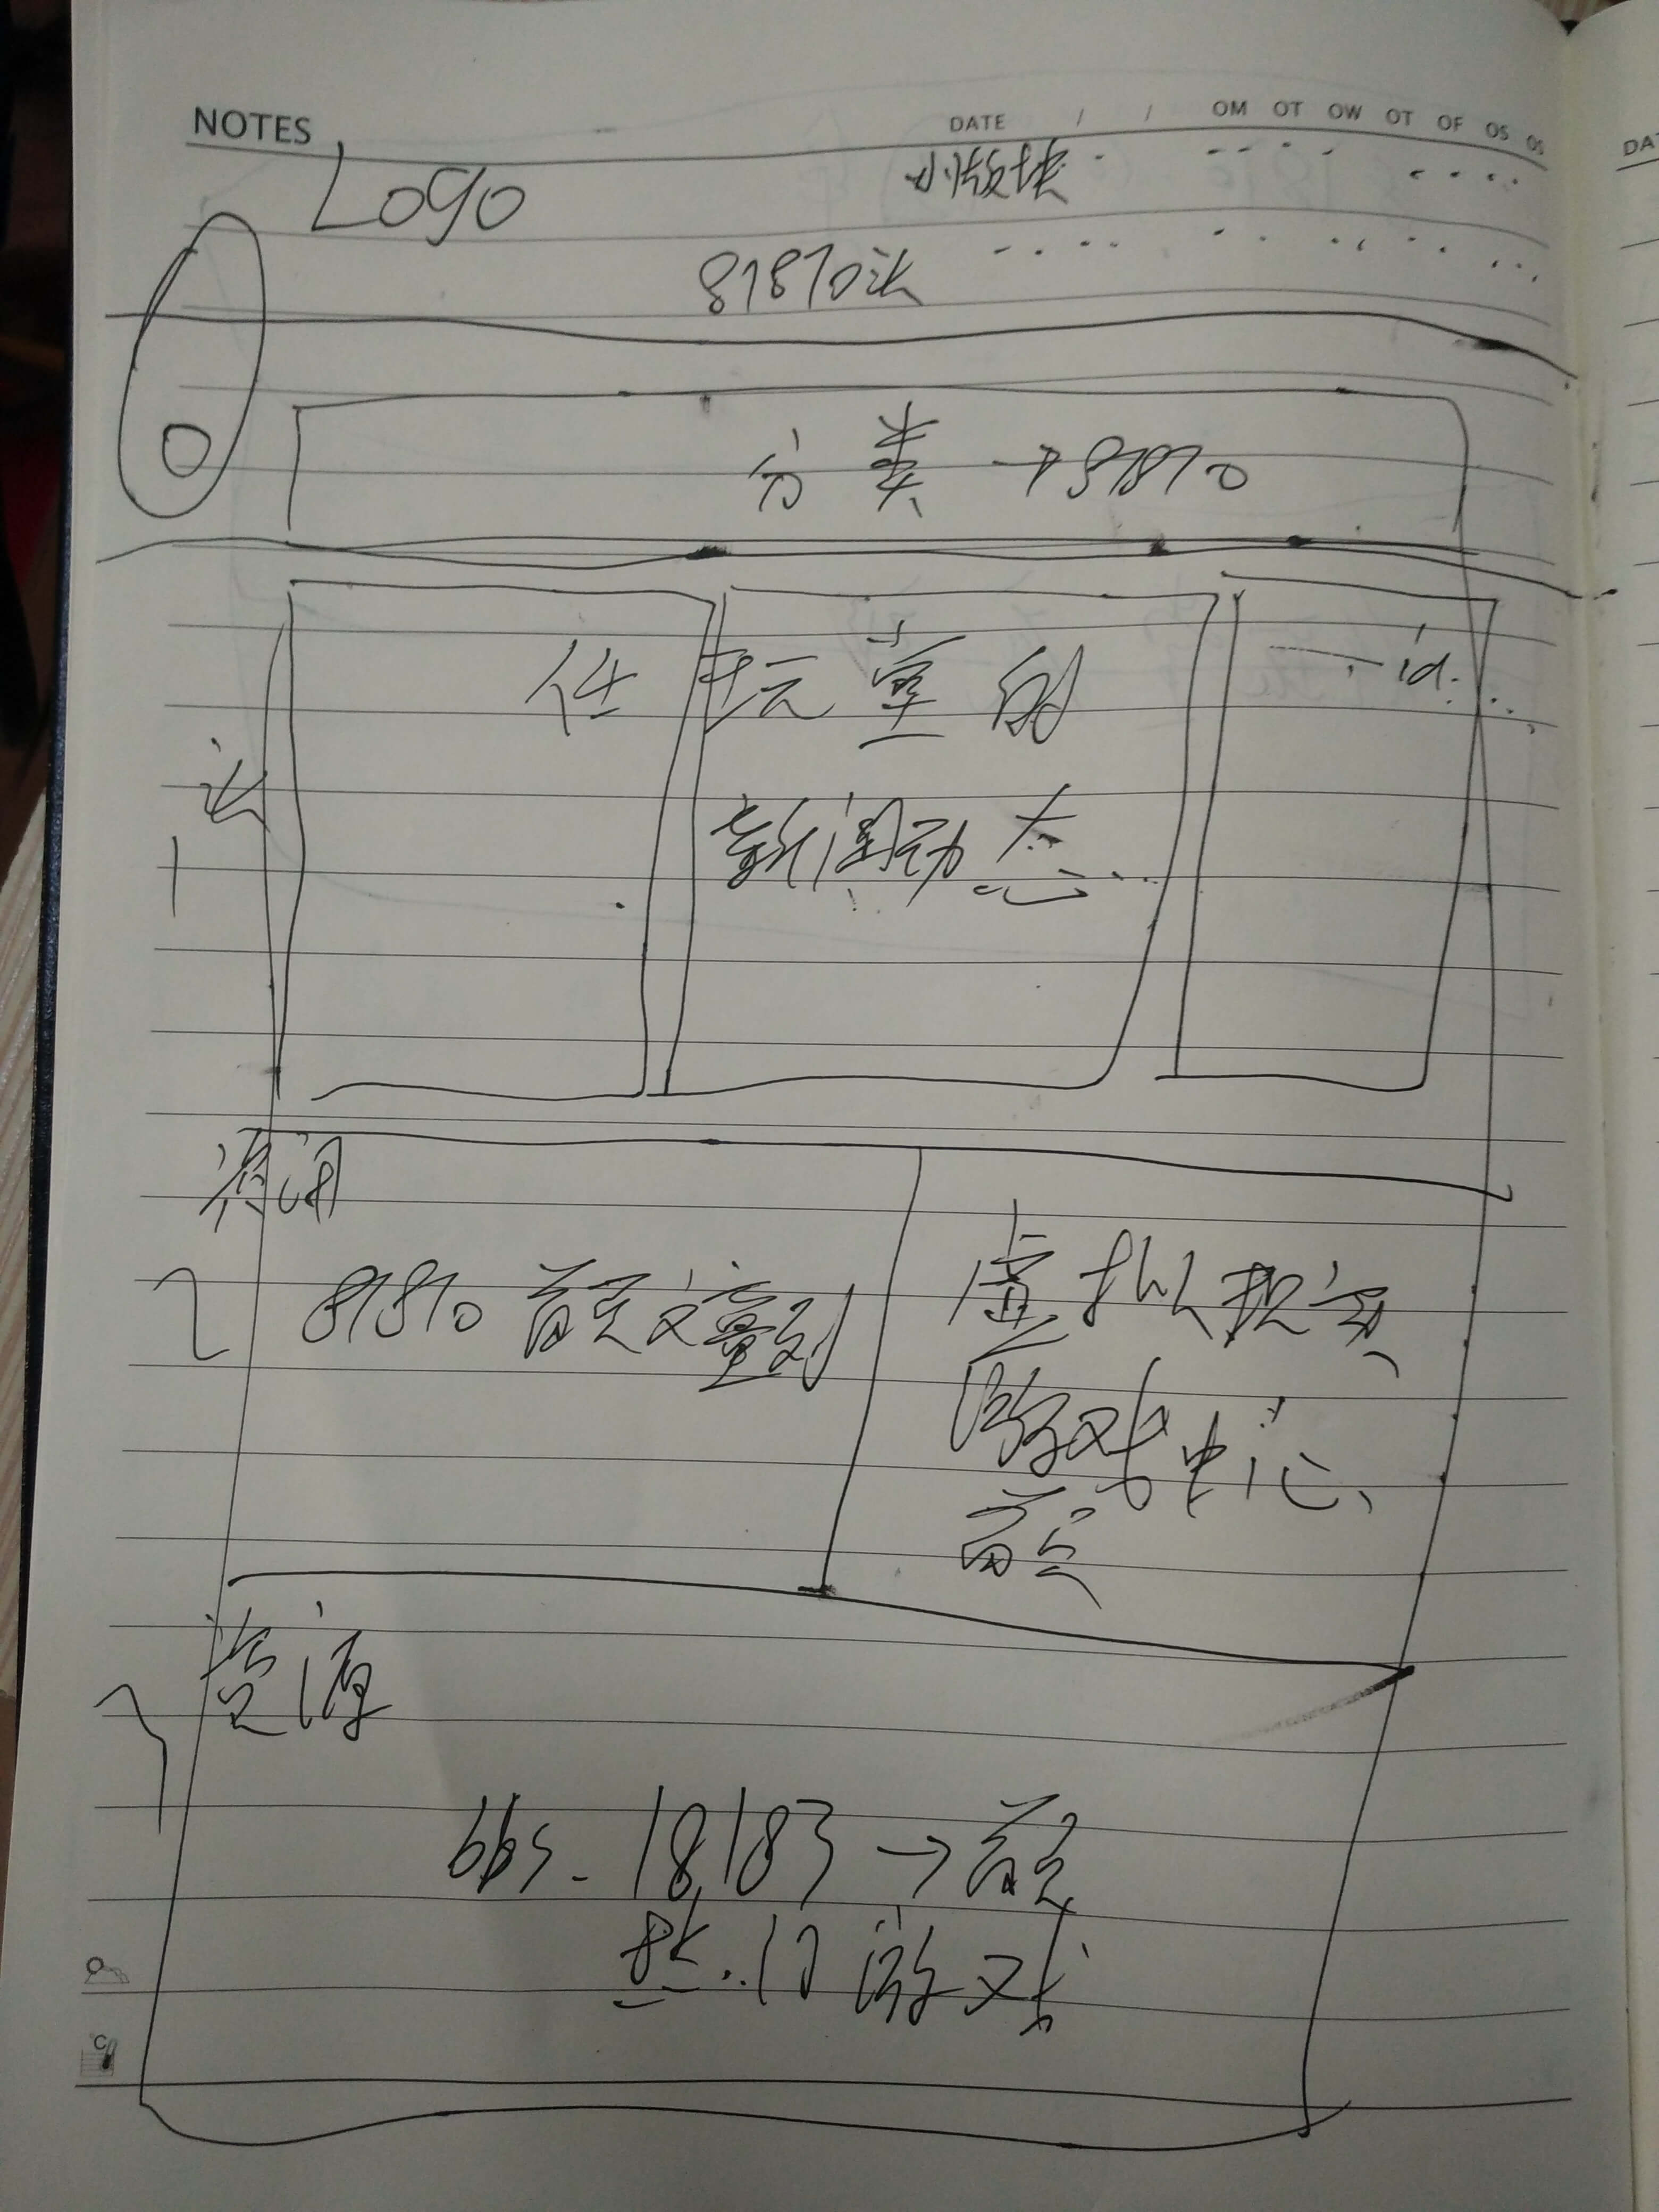 NOTES
DATE / / OM OT OW OT OF OS OS
DA
Logo
小版块
87870
分类 → 87870
任玩堂的
id
新闻动态
资讯
87870首页文章列
虚拟现实
游戏中心
首页
资源
bbs.18183 → 首页
热门游戏